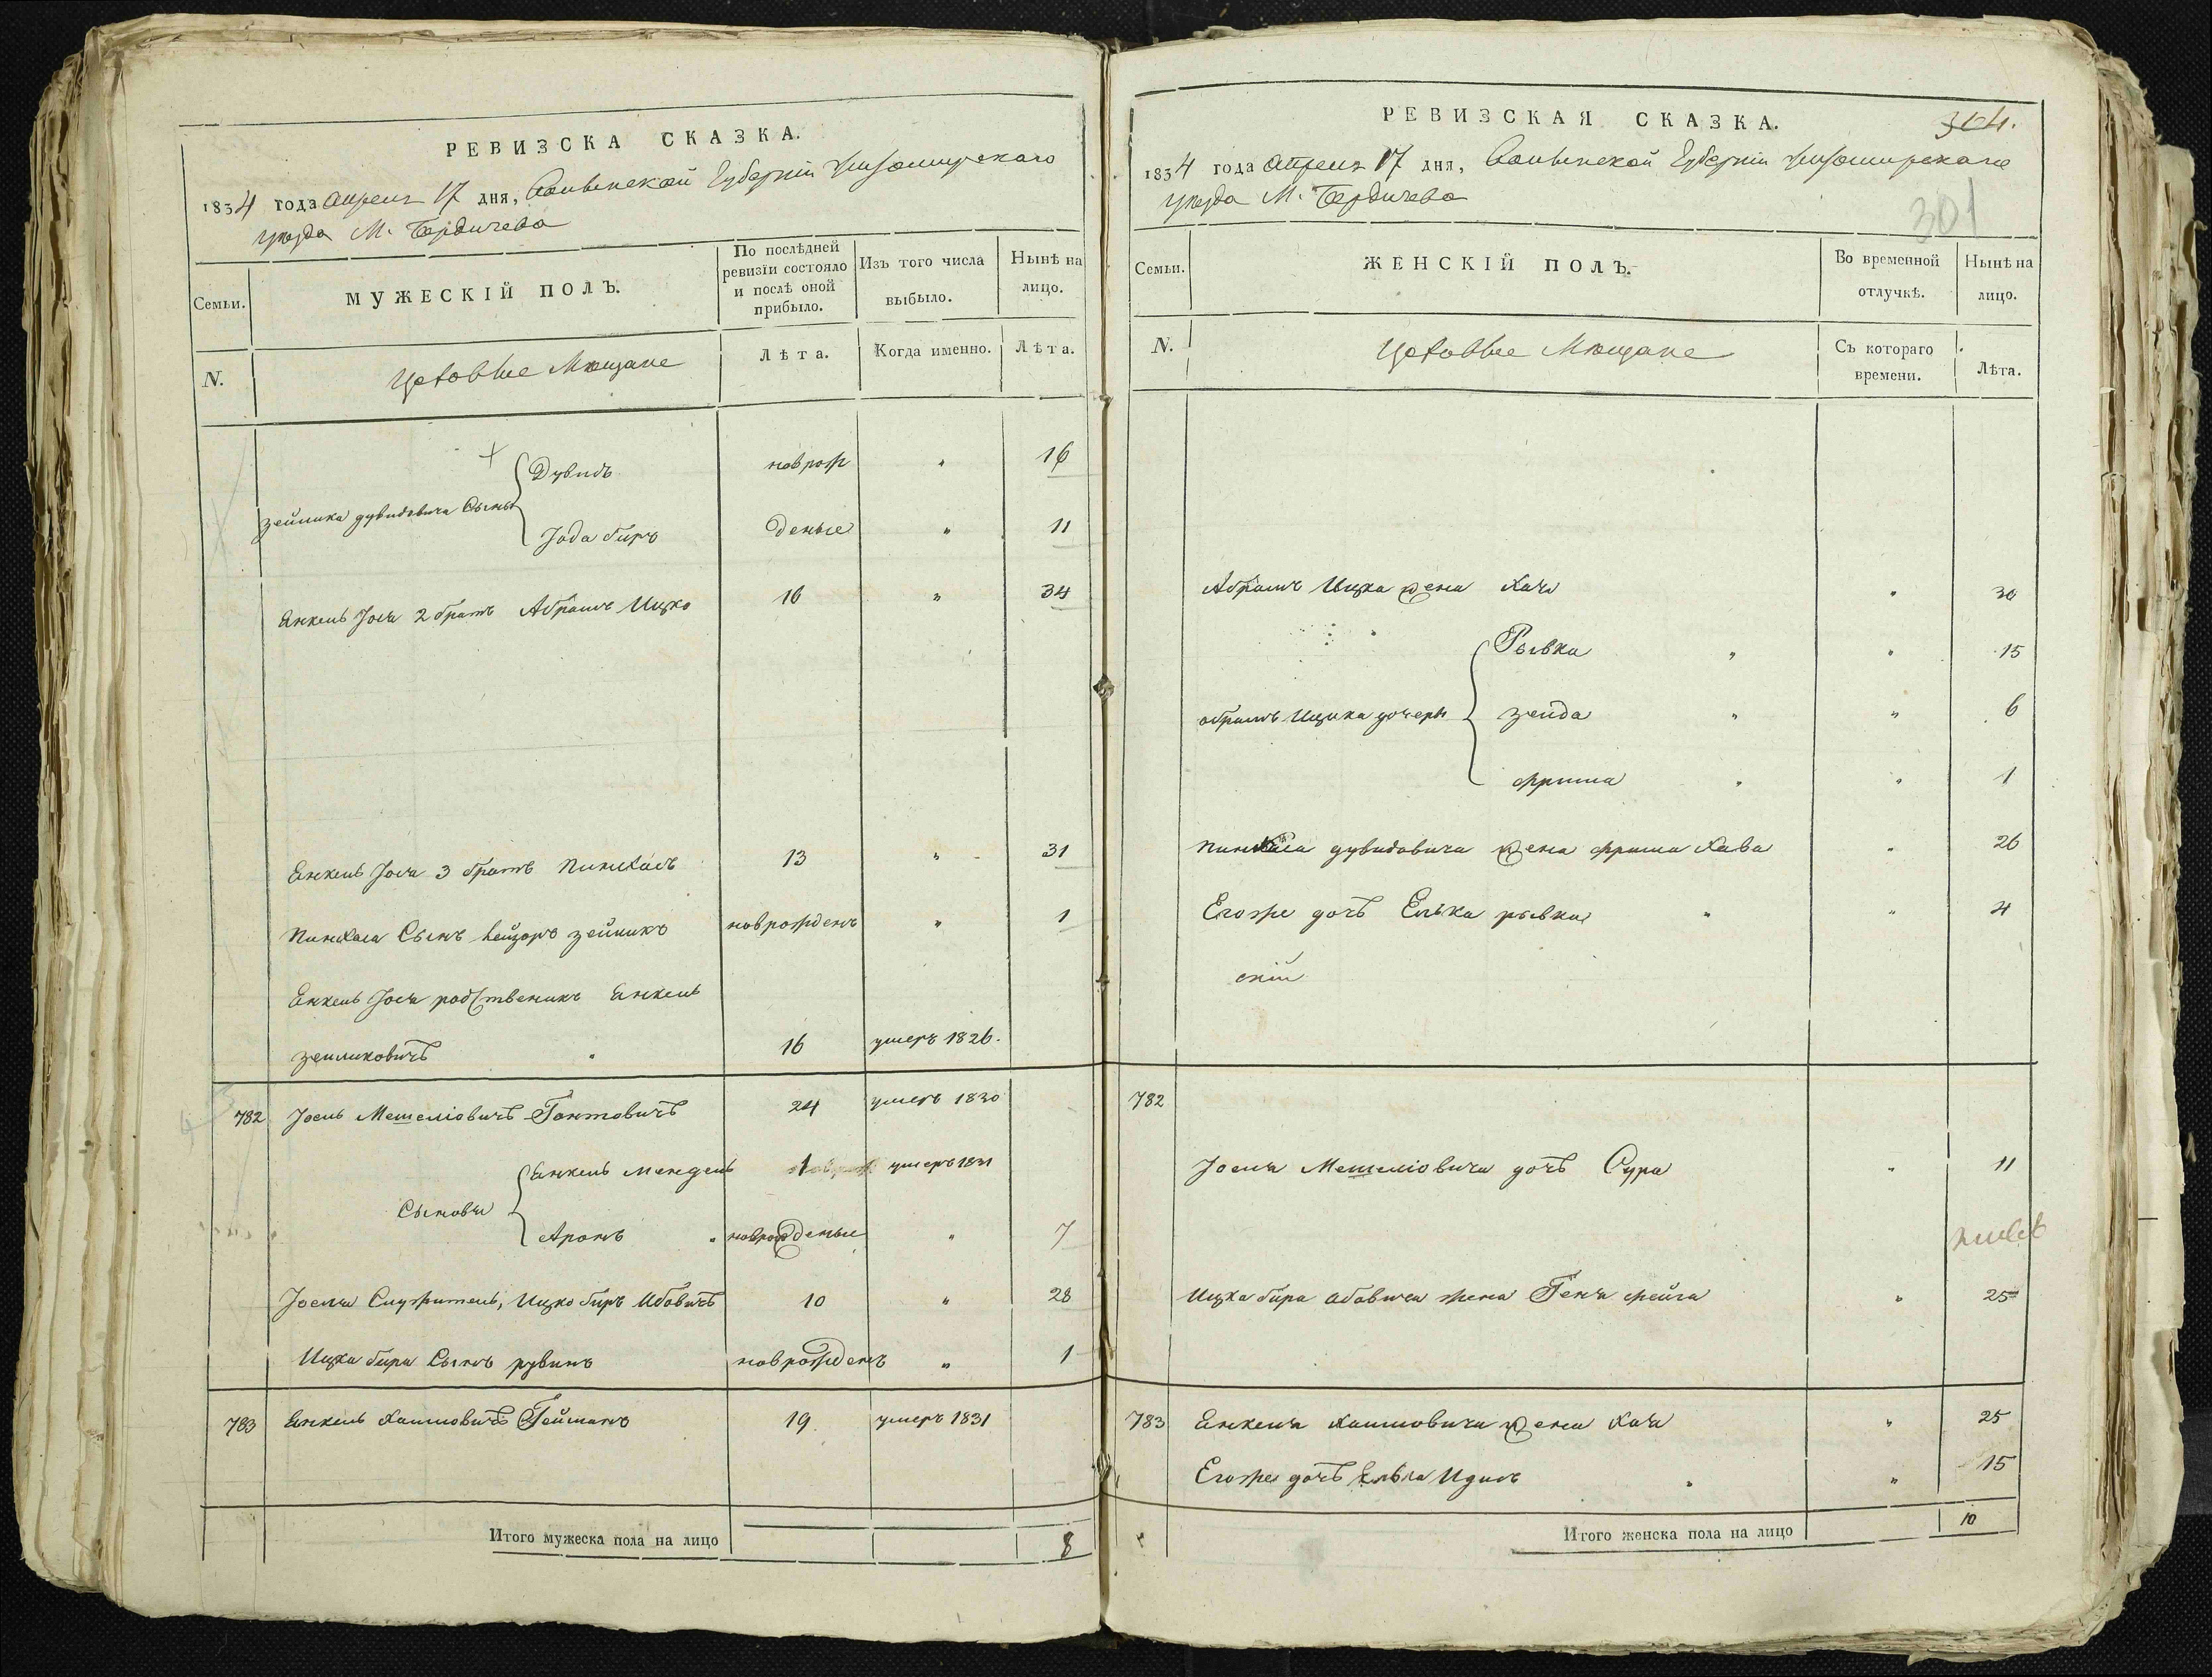 РЕВИЗСКА СКАЗКА.
1834 года апреля 17 дня, Волынской Губерніи Житомирскаго
уезда М. Бердичева
Семьи.
МУЖЕСКІЙ ПОЛЪ.
По послѣдней
ревизіи состояло
и послѣ оной
прибыло.
Изъ того числа
выбыло.
Нынѣ на
лицо.
N.
Цеховые Мещане
Лѣта.
Когда именно.
Лѣта.
Дувидъ новрож „ 16
зейлика дувидовича Сыны
Іода биръ деные „ 11
Енкель Іося 2 братъ Абрамъ Ицко 16 „ 34
Енкель Іося 3 братъ Пинхасъ 13 „ 31
Пинхаса Сынъ лейзоръ зейликъ новрожденъ „ 1
Енкель Іося родственикъ Енкель
зейликовичъ 16 умеръ 1826.
782 Іосель Мешеліовичъ 24 умеръ 1830
Енкель мендель 1 умеръ 1831
Сыновья
Аронъ новрожденые „ 7
Іоселя Служитель, Ицко биръ Абовичъ 10 „ 28
Ицка бира Сынъ рувинъ новрожденъ „ 1
783 Енкель Хаимовичъ Гейманъ 19 умеръ 1831
Итого мужеска пола на лицо 8
РЕВИЗСКАЯ СКАЗКА.
304.
1834 года апреля 17 дня, Волынской Губерніи Житомирскаго
уезда М. Бердичева
301
Семьи.
ЖЕНСКІЙ ПОЛЪ.
Во временной
отлучкѣ.
Нынѣ на
лицо.
N.
Цеховые Мещане
Съ котораго
времени.
Лѣта.
Абрамъ Ицка жена Хая „ 30
Рывка „ „ 15
абрамъ Ицика дочери зелда „ „ 6
фрима „ „ 1
Пинхаса дувидовича жена фрима Хава „ 26
Егоже дочь Елька рывка „ „ 4
782
Іоселя Мешеліовича дочь Сура „ 11
Ицка бира абовича жена Геня фейга „ 25
783 Енкеля Хаимовича жена Хая „ 25
Егоже дочь „ „ 15
Итого женска пола на лицо 10